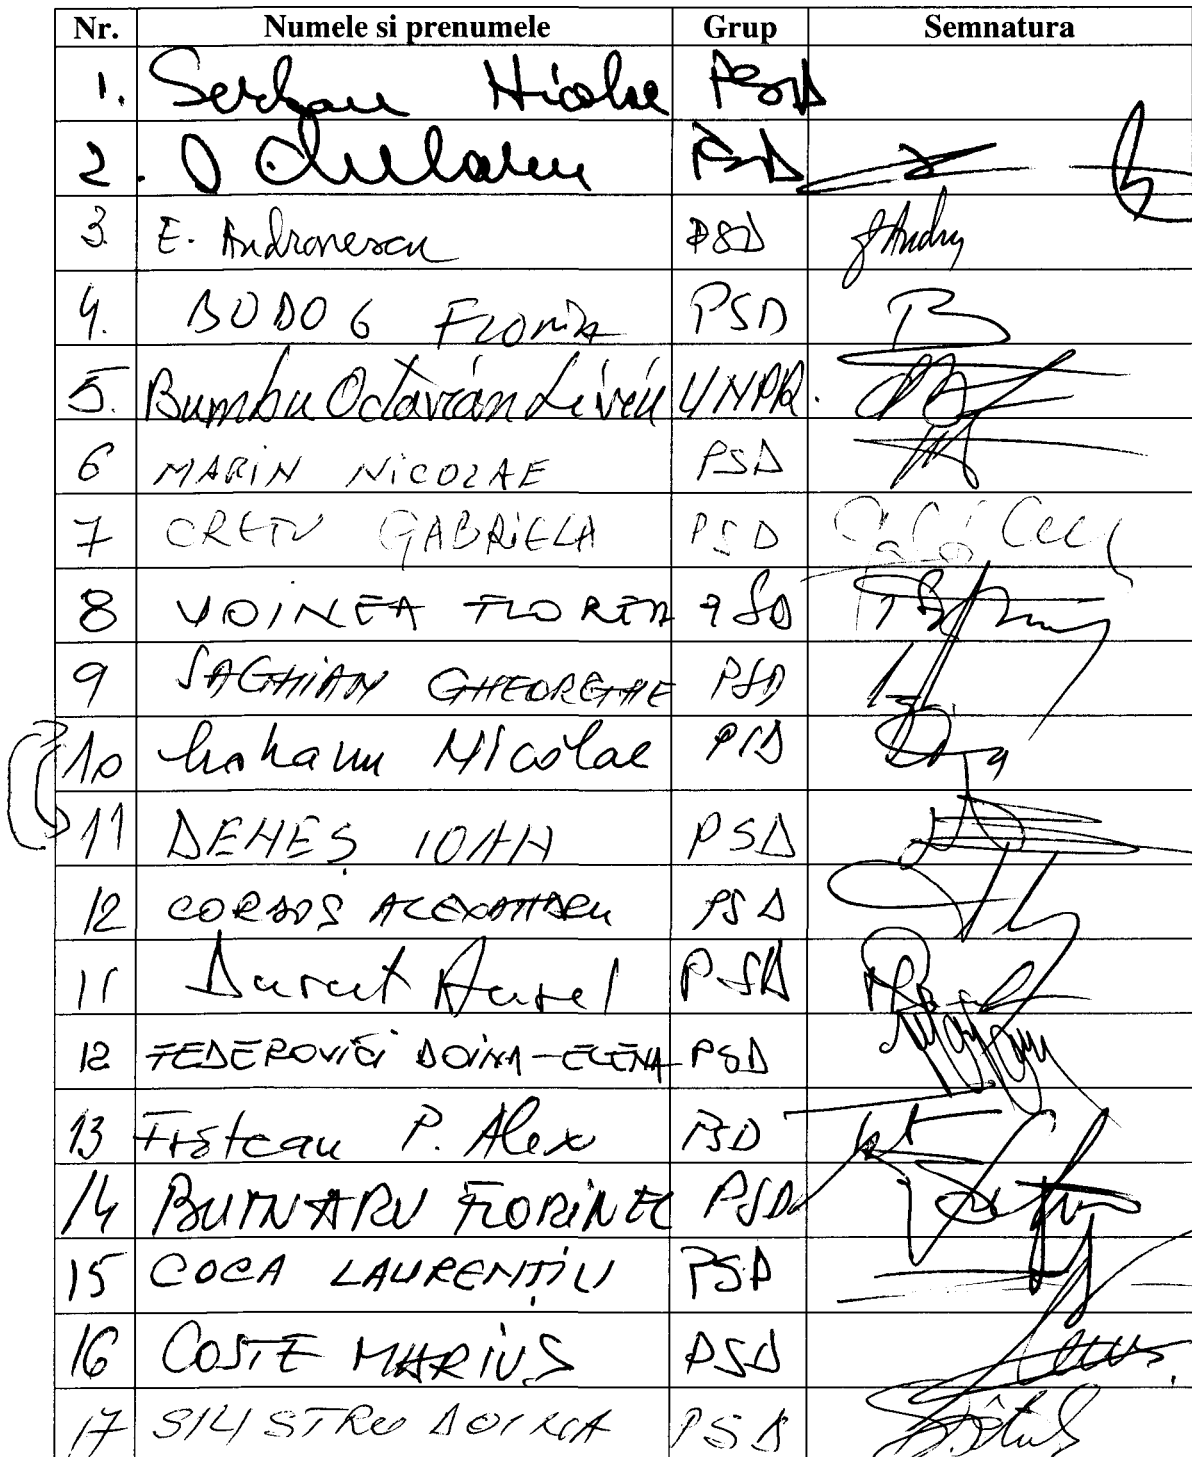 Nr. Numele si prenumele Grup Semnatura
1. Serban Nicolae PSD
2. PSD
3. E. Andronescu PSD
4. BODOG Florin PSD
5. Bumbu Octavian Liviu UNPR.
6 MARIN NICOLAE PSD
7 CRETU GABRIELA PSD
8 VOINEA FLORIN PSD
9 SAGHIAN GHEORGHE PSD
10 Mohanu Nicolae PSD
11 DENEȘ IOAN PSD
12 CORDOȘ ALEXANDRU PSD
11 Duruț Aurel PSD
12 FEDEROVICI DOINA-ELENA PSD
13 P. Alex PSD
14 BUTNARU FLORINEL PSD
15 COCA LAURENȚIU PSD
16 COSTE MARIUS PSD
17 SILISTRU DOINA PSD